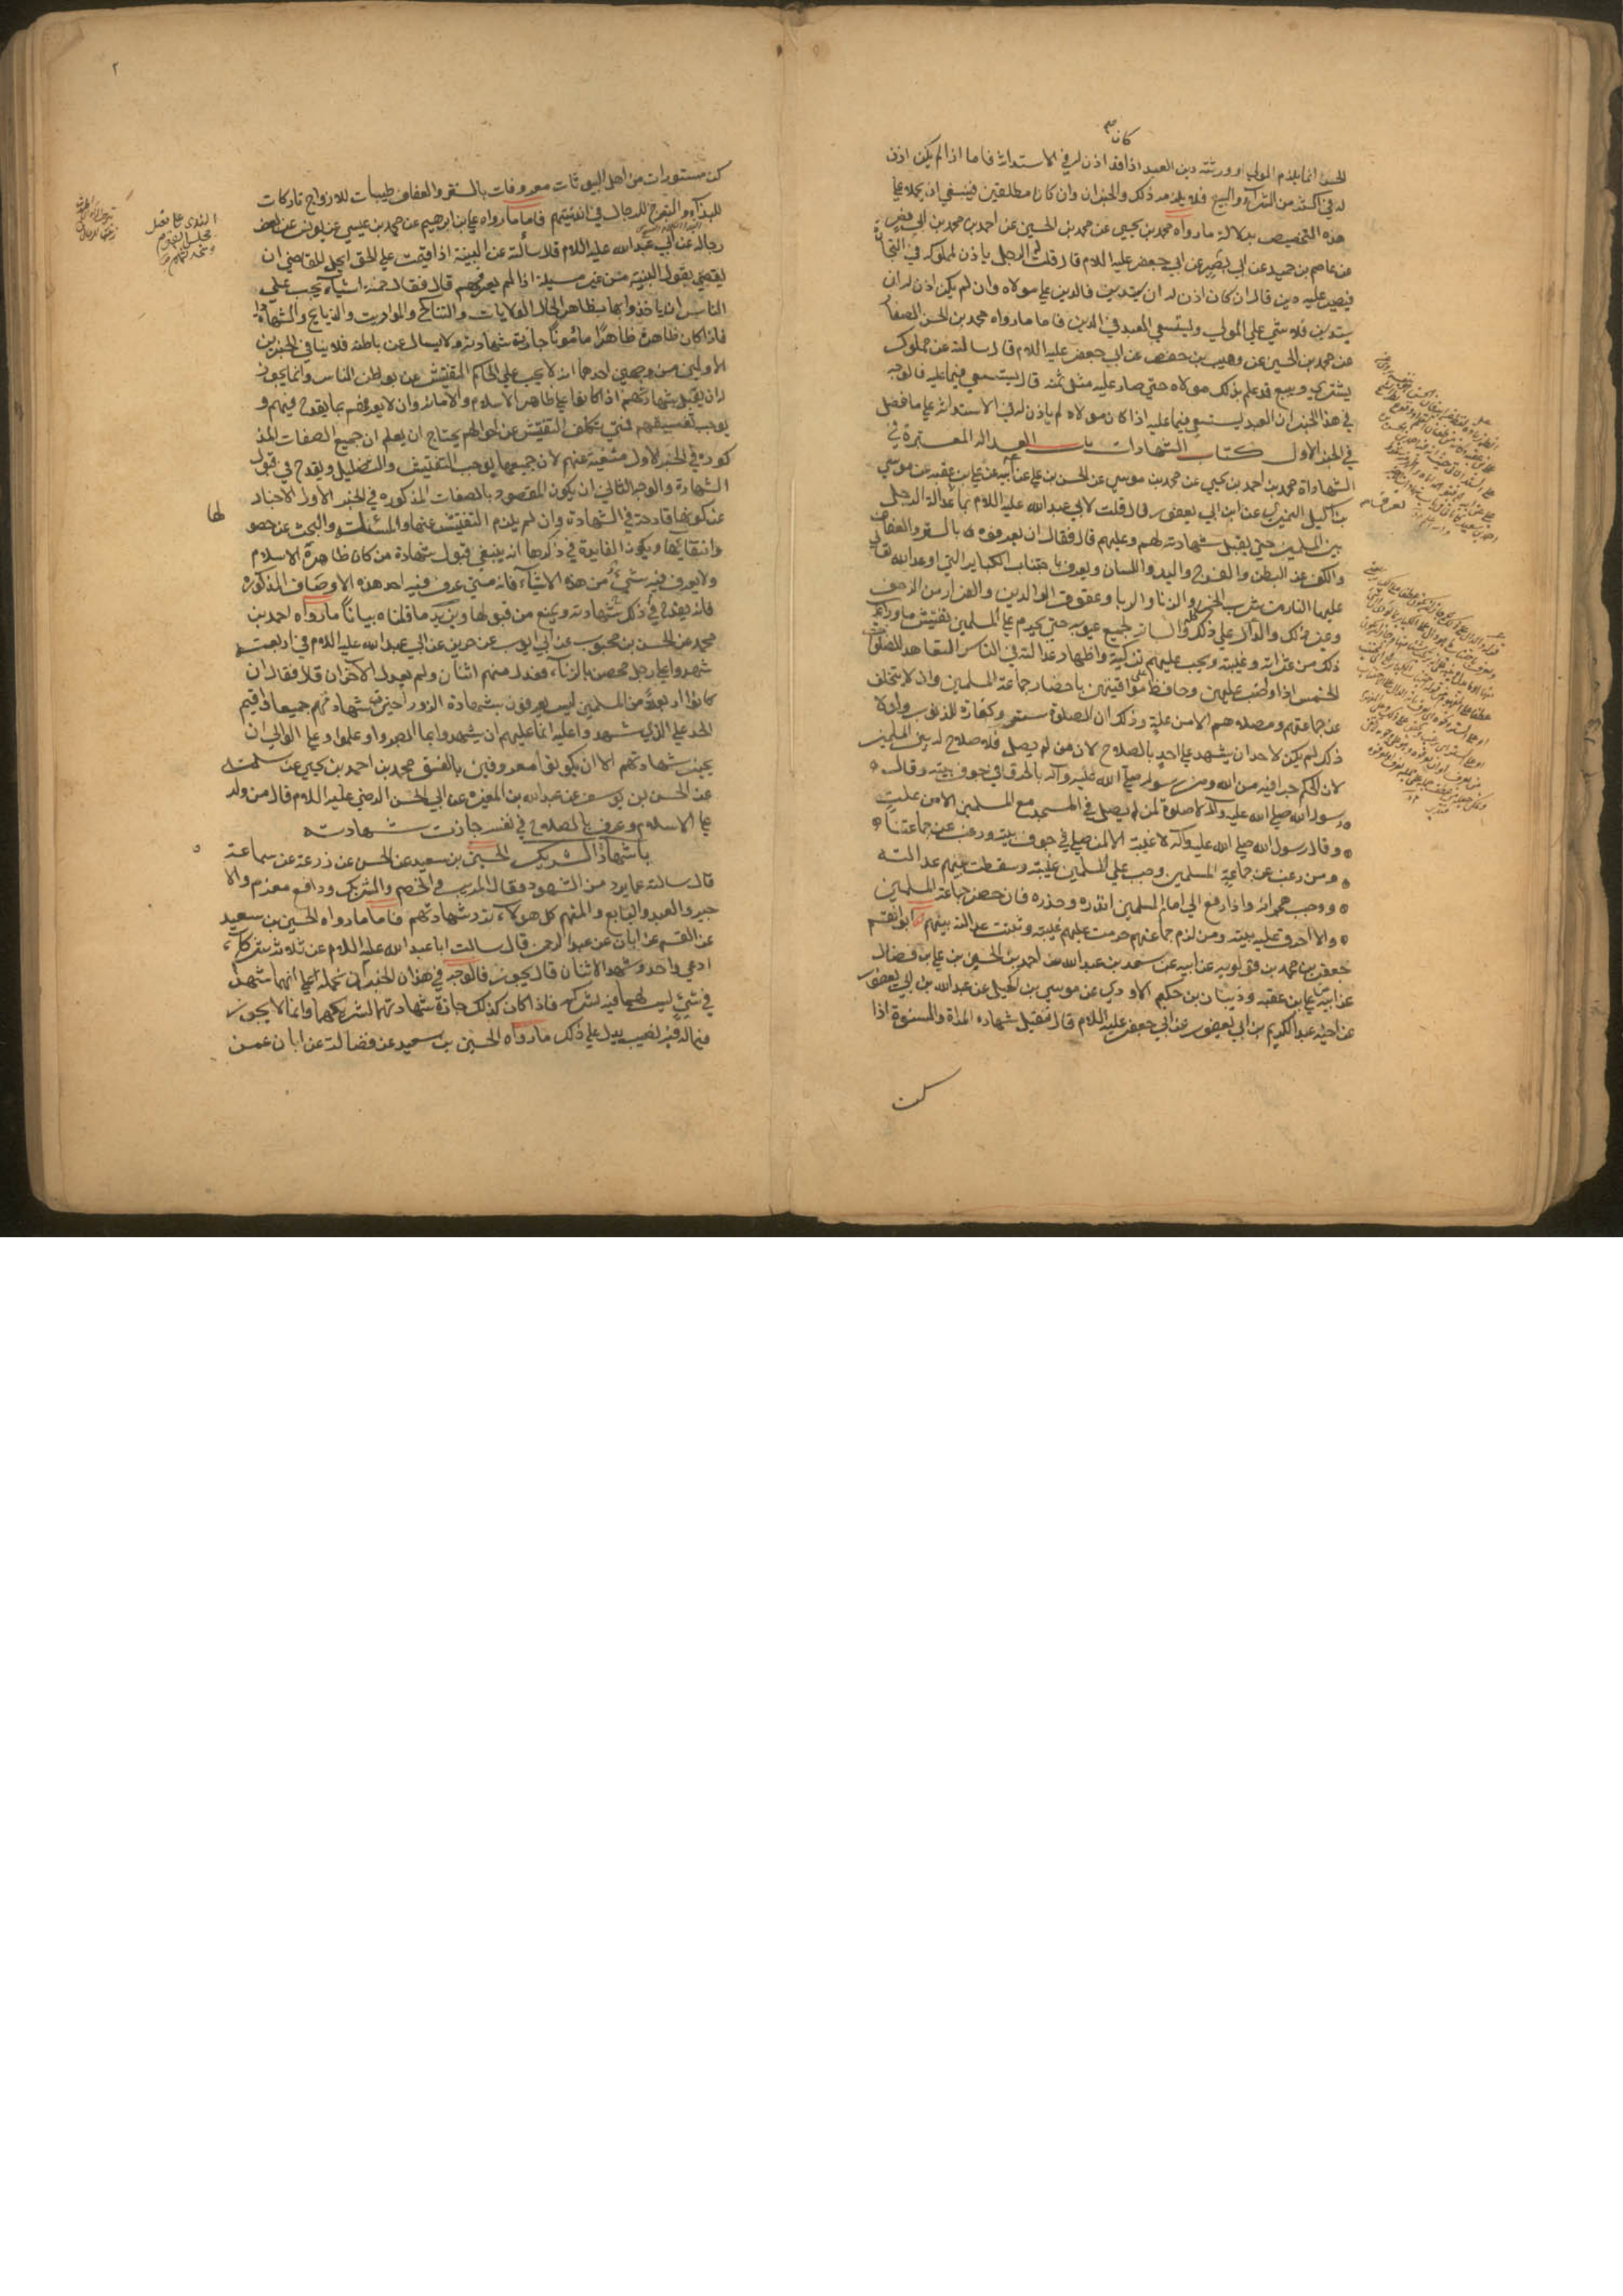 كان
الحسن انما يلزم المولى او ورثته دين العبد اذا قد اذن له في الاستدانة فاما اذا لم يكن اذن
له في اكثر من الشراء والبيع فلا يلزمه ذلك والخبران وان كانا مطلقين فينبغي ان نحملهما على
هذه التخصيص بدلالة ما رواه محمد بن يحيى عن محمد بن الحسين عن احمد بن محمد بن ابي نصر
عن عاصم بن حميد عن ابي بصير عن ابي جعفر عليه السلام قال قلت له الرجل ياذن لمملوكه في التجارة
فيصير عليه دين قال ان كان اذن له ان يستدين فالدين على مولاه وان لم يكن اذن له ان
يستدين فلا شي على المولى ويستسعي العبد في الدين فاما ما رواه محمد بن الحسن الصفار
عن محمد بن الحسين عن وهيب بن حفص عن ابي جعفر عليه السلام قال سالته عن مملوك
يشتري ويبيع قد علم بذلك مولاه حتى صار عليه مثل ثمنه قال يستسعي فيما عليه فالوجه
في هذا الخبر ان العبد يستسعي فيما عليه اذا كان مولاه لم ياذن له في الاستدانة على ما فصل
في الخبر الاول كتاب الشهادات باب العدالة المعتبرة في
الشهادة محمد بن احمد بن يحيى عن محمد بن موسى عن الحسن بن علي عن ابيه عن علي بن عقبه عن موسى
بن اكيل النميري عن ابن ابي يعفور قال قلت لابي عبد الله عليه السلام بما عدالة الرجل
بين المسلمين حتى يقبل شهادته لهم وعليهم قال فقال ان يعرفوه بالستر والعفاف
والكف عن البطن والفرج واليد واللسان ويعرف باجتناب الكباير التي اوعد الله تعالى
عليها النار من شرب الخمر والزنا والربا وعقوق الوالدين والفرار من الزحف
وغير ذلك والدال على ذلك كله والساتر لجميع عيوبه حتى يحرم على المسلمين تفتيش ما وراء
ذلك من عثراته وغيبته ويجب عليهم تزكيته واظهار عدالته في الناس التعاهد للصلوات
الخمس اذا واظب عليهن وحافظ على مواقيتهن باحضار جماعة المسلمين وان لا يتخلف
عن جماعتهم ومصلاهم الا من علة وذلك ان الصلوة ستر وكفارة للذنوب ولولا
ذلك لم يكن لاحد ان يشهد على احد بالصلاح لان من لم يصل فلا صلاح له بين المسلمين
لان الحكم جرا فيه من الله ومن رسوله صلى الله عليه وآله بالحرق في جوف بيته وقال
رسول الله صلى الله عليه وآله لا صلوة لمن لم يصلي في المسجد مع المسلمين الا من علة
وقال رسول الله صلى الله عليه وآله لا غيبة الا لمن صلى في جوف بيته ورغب عن جماعتنا
ومن رغب عن جماعة المسلمين وجب على المسلمين غيبته وسقطت بينهم عدالته
ووجب هجرانه واذا رفع الى امام المسلمين انذره وحذره فان حضر جماعة المسلمين
والا احرق عليه بيته ومن لزم جماعتهم حرمت عليهم غيبته وثبتت عدالته بينهم ابو القسم
جعفر بن محمد بن قولويه عن ابيه عن سعد بن عبد الله عن احمد بن الحسن بن علي بن فضال
عن ابيه عن علي بن عقبه وذبيان بن حكيم الاودي عن موسى بن اكيل عن عبد الله بن ابي يعفور
عن اخيه عبد الكريم بن ابي يعفور عن ابي جعفر عليه السلام قال تقبل شهاده المراة والنسوة اذا
كن
٢
كن مستورات من اهل البيوتات معروفات بالستر والعفاف مطيعات للازواج تاركات
للبذاء والتبرج للرجال في انديتهم فاما ما رواه علي بن ابرهيم عن محمد بن عيسى عن يونس عن بعض
رجاله عن ابي عبد الله عليه السلام قال سالته عن البينة اذا اقيمت على الحق ايحل للقاضي ان
يقضي بقول البينة من غير مسئلة اذا لم يعرفهم قال فقال خمسة اشياء يجب على
الناس ان ياخذوا بها بظاهر الحال الولايات والتناكح والمواريث والذبايح والشهادات
فاذا كان ظاهره ظاهرا مامونا جازت شهادته ولا يسال عن باطنه فلا ينافي الخبرين
الاولين من وجهين احدهما انه لا يجب على الحاكم التفتيش عن بواطن الناس وانما يجوز
له ان يقبل شهادتهم اذا كانوا على ظاهر الاسلام والامانة وان لا يعرفهم بما يقدح فيهم و
يوجب تفسيقهم فمتى تكلف التفتيش عن احوالهم يحتاج ان يعلم ان جميع الصفات المذ
كوره في الخبر الاول منتفية عنهم لان جميعها يوجب التفسيق والتضليل ويقدح في قبول
الشهادة والوجه الثاني ان يكون المقصود بالصفات المذكوره في الخبر الاول الاخبار
عن كونها قادحة في الشهادة وان لم يلزم التفتيش عنها والمسئلة والبحث عن حصو
لها
وانتفائها ويكون الفايدة في ذكرها انه ينبغي قبول شهادة من كان ظاهره الاسلام
ولا يعرف فيه شي من هذه الاشياء فانه متى عرف فيه احد هذه الاوصاف المذكوره
فانه يقدح في ذلك شهادته ويمنع من قبولها ويزيد ما قلناه بيانا ما رواه احمد بن
محمد عن الحسن بن محبوب عن ابي ايوب عن حريز عن ابي عبد الله عليه السلام في اربعة
شهدوا على رجل محصن بالزنآء فعدل منهم اثنان ولم يعدل الآخران قال فقال ان
كانوا اربعة من المسلمين ليس يعرفون بشهادة الزور اجيزت شهادتهم جميعا واقيم
الحد على الذي شهدوا عليه انما عليهم ان يشهدوا بما ابصروا وعلموا وعلى الوالي ان
يجيز شهادتهم الا ان يكونوا معروفين بالفسق محمد بن احمد بن يحيى عن سلمة
عن الحسن بن يوسف عن عبد الله بن المغيره عن ابي الحسن الرضي عليه السلام قال من ولد
على الاسلام وعرف بالصلاح في نفسه جازت شهادته
باب شهادة الشريك الحسين بن سعيد عن الحسن عن زرعة عن سماعة
قال سالته عما يرد من الشهود فقال المريب والخصم والشريك ودافع مغرم والا
جير والعبد والتابع والمتهم كل هولاء ترد شهادتهم فاما ما رواه الحسين بن سعيد
عن القسم عن ابان عن عبد الرحمن قال سالت ابا عبد الله عليه السلام عن ثلاثة شركاء
ادعى واحد وشهد الاثنان قال يجوز فالوجه في هذا الخبر ان نحمله على انهما شهدا
في شئ ليس لهما فيه شركة فاذا كان كذلك جازت شهادتهما لشريكهما وانما لا يجوز
فيما له فيه نصيب يدل على ذلك ما رواه الحسين بن سعيد عن فضالة عن ابان عمن